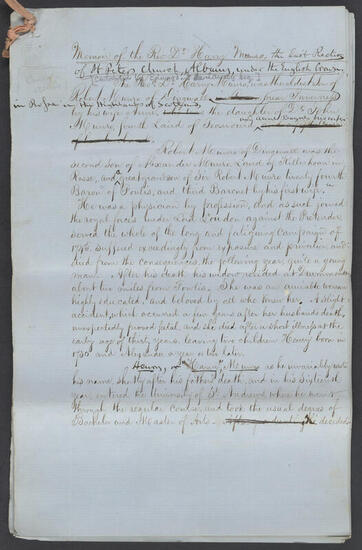 Memoir of the Rev. Dr. Harry Munro, the last Rector
of St Peter's Church Albany, under the English Crown,
The Rev. Dr. Harry Munro, was the eldest son of
Robert Munro of Dingwall
in Rosshire in the Highlands of Scotland
by his wife Anne the daughter of
Munro, fourth Laird of Teaninich
Robert Munro of Dingwall was the
second son of Alexander Munro Laird of Killichoan in
Ross, and great grandson of Sir Robert Munro twenty fourth
Baron of Foulis, and third Baronet by his first wife.
He was a physician by profession, and as such joined
the royal forces under Lord Loudon against the Pretender
served the whole of the long and fatiguing Campaign of
1746, suffered exceedingly from exposure and privation and
died from the consequences, the following year, quite a young
man. After his death his widow resided at
about two miles from Foulis. She was an amiable woman
highly educated, and beloved by all who knew her. A slight
accident, which occurred a few years after her husbands death,
unexpectedly proved fatal, and she died after a short illness at the
early age of thirty years, leaving two children Henry born in
1730 and a year or two later.
Henry, or "Harry" Munro as he invariably wrote
his name, shortly after his father's death, and in his sixteenth
year, entered the University of St. Andrews where he went
through the regular course, and took the usual degrees of
Bachelor and Master of Arts. he decided